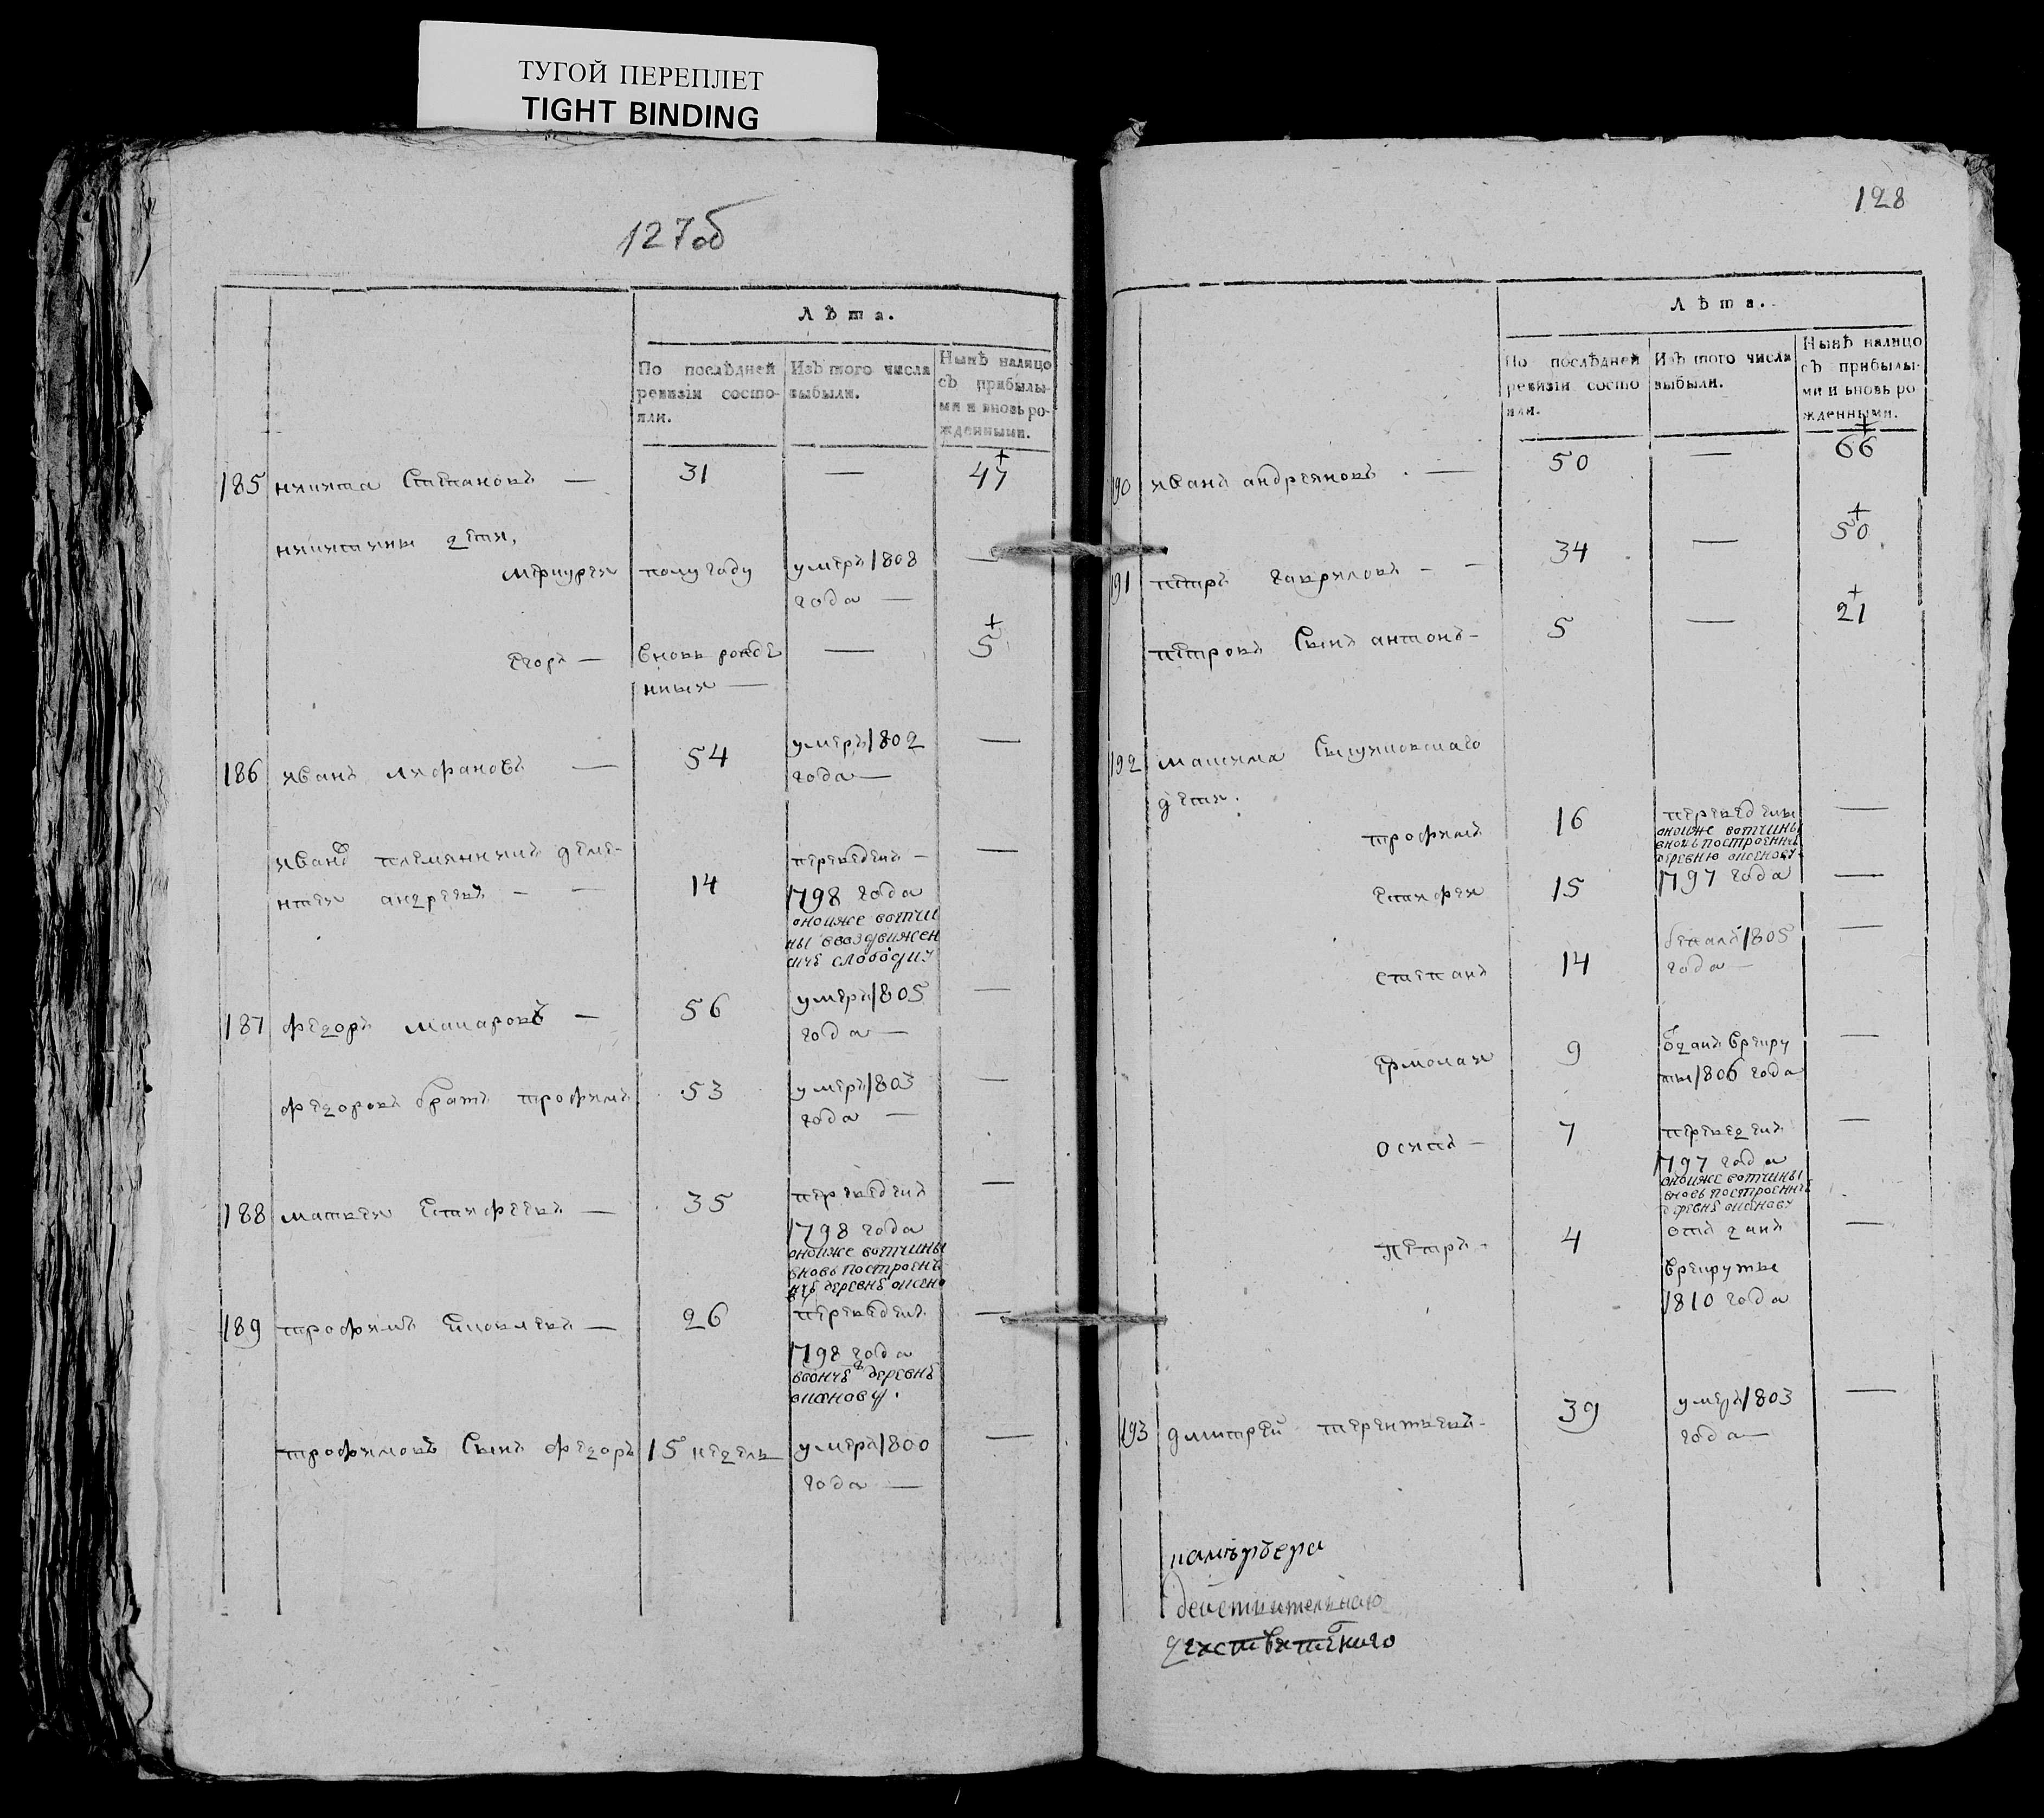 ТУГОЙ ПЕРЕПЛЕТ
TIGHT BINDING
127об
Лѣта.
По послѣдней ревизіи состояли.
Изъ того числа выбыли.
Нынѣ налицо съ прибылыми и вновь рожденными.
185 никита Степановъ — 31 — 47
никитины дети,
меркурей полугоду умеръ 1808
года —
Егоръ — вновь рожде — 5
нныи —
186 иванъ 54 умеръ 1802 —
года —
ивановъ племянникъ деме-
нтей андреевъ — 14 переведенъ — —
1798 года
оной же вотчи
ны
слободку
187 федоръ макаровъ — 56 умеръ 1805 —
года —
федоровъ братъ трофимъ 53 умеръ 1803 —
года —
188 матвей Естифеевъ — 35 переведенъ —
1798 года
оной же вотчины
вновь построен
деревнѣ
189 трофимъ Яковлевъ — 26 переведенъ —
1798 года
деревнѣ
трофимовъ Сынъ федоръ 15 недель умеръ 1800 —
года —
128
Лѣта.
По послѣдней ревизіи состояли.
Изъ того числа выбыли.
Нынѣ налицо съ прибылыми и вновь рожденными.
190 иванъ андреяновъ — 50 — 66
191 петръ гавриловъ — 34 — 50
петровъ Сынъ антонъ — 5 — 21
192 максима
дети.
трофимъ 16 переведены —
оной же вотчины
вновь построенную
деревню
Естифей 15 1797 года —
степанъ 14 бежалъ 1805 —
года —
Ермолай 9 отданъ Врекру —
ты 1806 года
осипъ — 7 переведенъ —
1797 года
оной же вотчины
вновь построенн
деревнѣ
Петръ — 4 отъ данъ —
Врекруты
1810 года
193 дмитрей терентьевъ — 39 умеръ 1803 —
года —
камергера
действительнаго